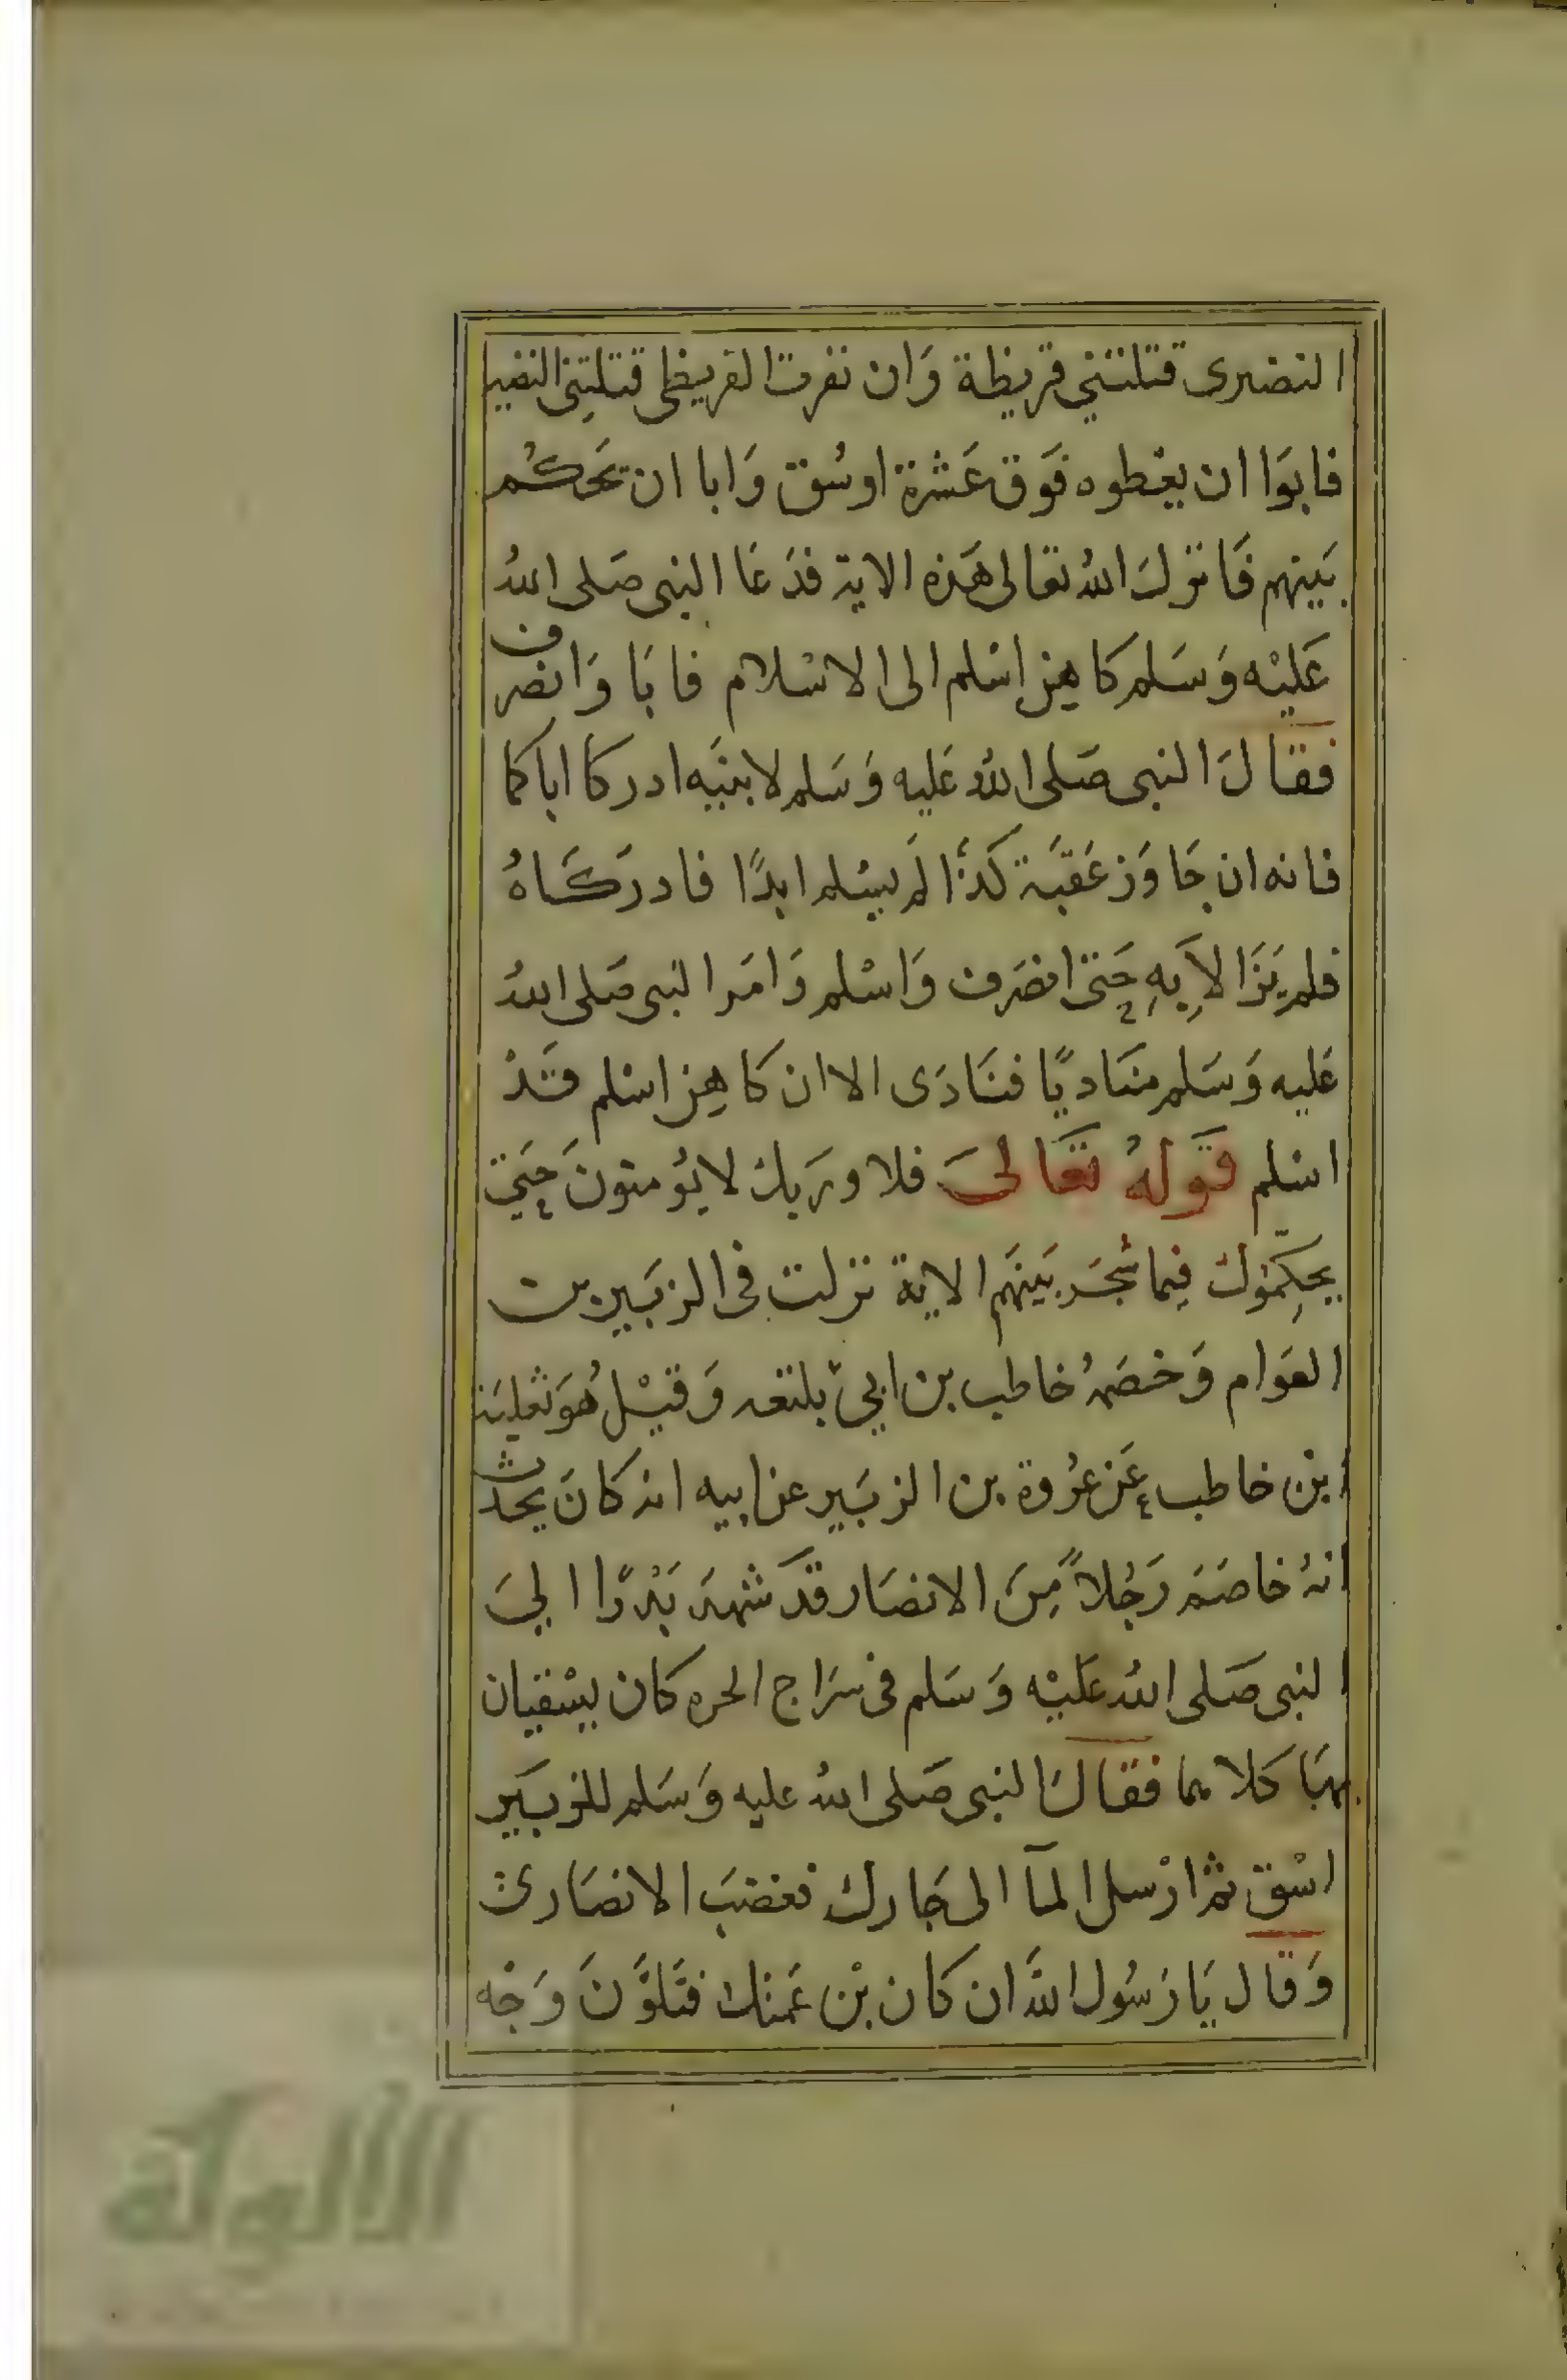 النضيرى قتلتني قريظة وَان نفرت القريظى قتلتِنى النضير
فابوَا ان يعْطوه فوَق عَشرة اوسُق وَابا ان يَحكُم
بَينهم فَانزلَ اللهُ تعالى هَذه الاية فدَعَا النبى صَلى اللهُ
عَليْه وَسَلم كاهِن اسْلم الى الاسْلام فابَا وَانصرف
فقالَ النبى صَلى اللهُ عَليه وَسَلم لابنيَه ادركا اباكما
فانه ان جَاوَز عَقبَة كَذَا لَم يسْلم ابدًا فادركَاهُ
فلم يَزَالاَ بِهِ حَتى انصَرف وَاسْلم وَامَر النبى صَلى اللهُ
عَليه وَسَلم منَاديًا فنَادَى الا ان كاهِن اسْلم قَدْ
اسْلم قَولهُ تَعَالىَ فلا وَرَبك لا يُومنونَ حَتى
يحكِّموُك فِيما شجَر بَينَهَم الاية نزلت فى الزبَير بن
العَوام وَخصَمهُ خاطب بن ابىْ بلتعه وَقيْل هُوَ ثعلبَة
بْن خاطب عَن عرُوة بن الزبَير عن ابيه انه كانَ يحَدث
انهُ خاصَمَ رَجُلاً مِنَ الانصَار قَد شهدَ بَدْرًا الىَ
النبى صَلى اللهُ عَليْه وَسَلم فى سَراج الحره كان يسْقيان
بهَا كلاهما فقالَ النبى صَلى اللهُ عليه وَسَلم للزبَير
اسْق ثم ارْسل المآ الى جَارك فغضبَ الانصَارى
وَقال يَا رَسُول اللهَ ان كان بْن عَمتك فتَلوَّنَ وَجْه
الألوكة